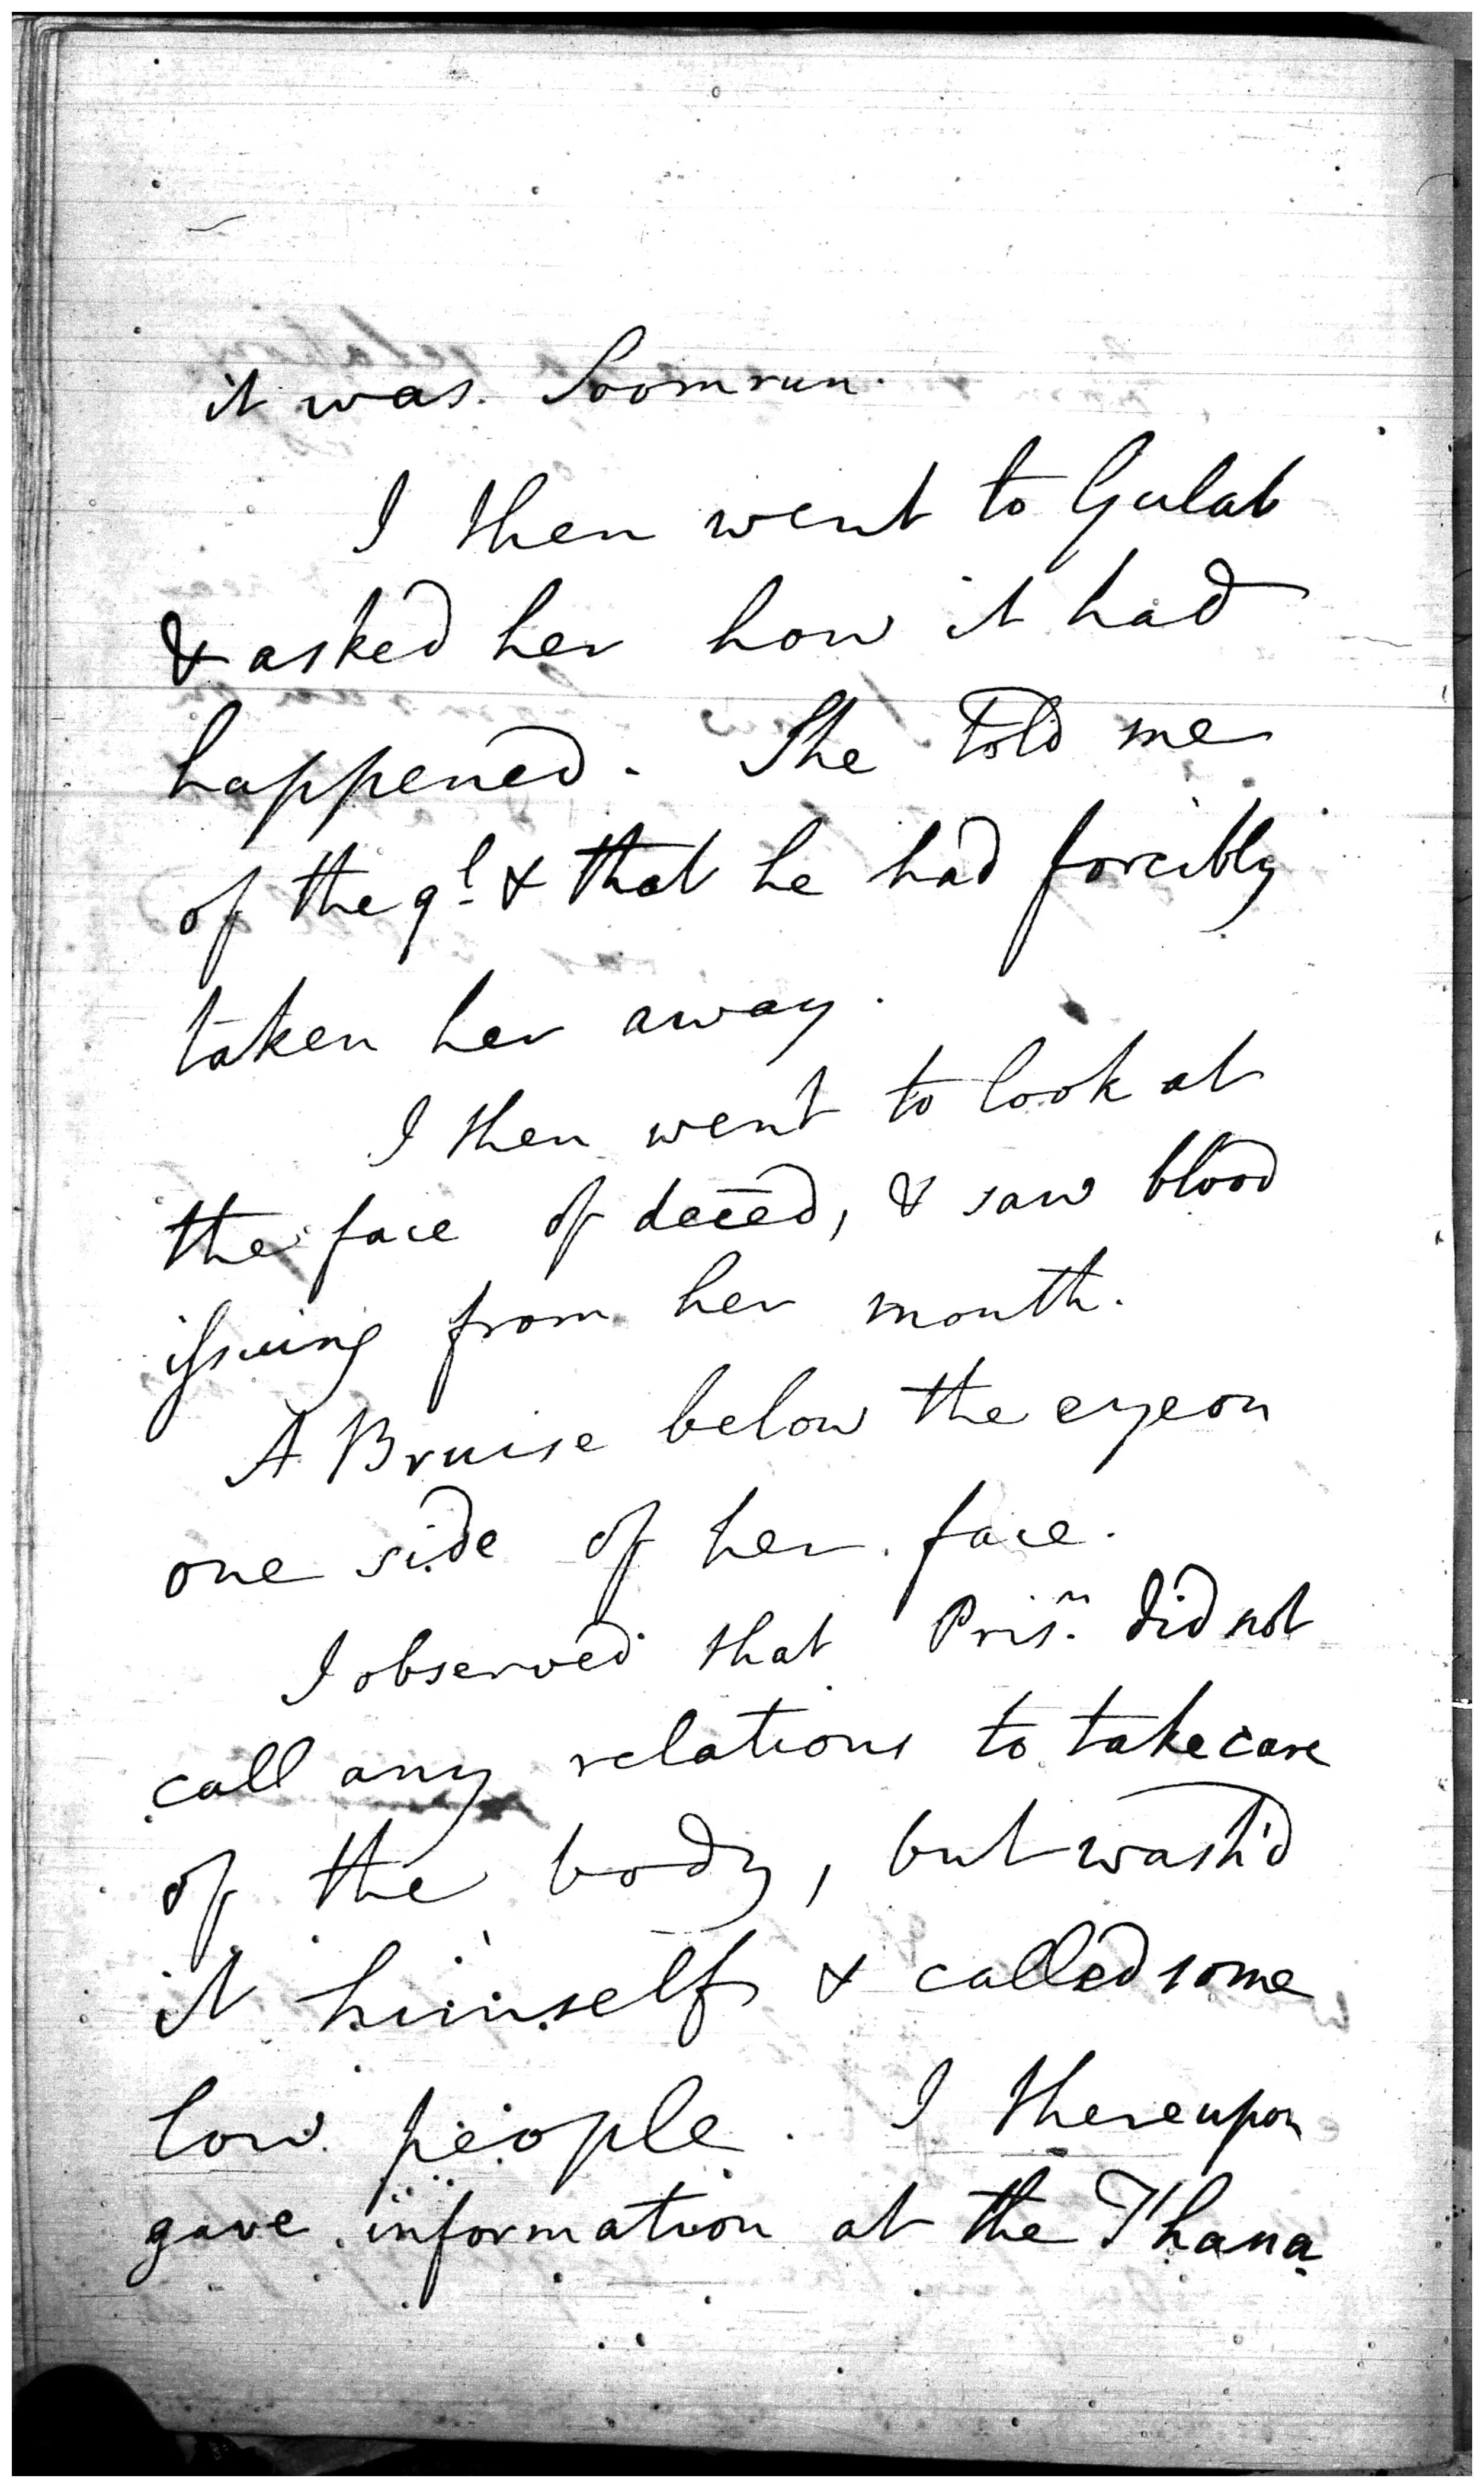 it was. Soomrun.
I then went to Gulab
& asked her how it had
happened. She told me
of the ql. & that he had forcibly
taken her away.
I then went to look at
the face of deced, & saw blood
issuing from her mouth.
A Bruise below the eye on
one side of her face.
I observed that Prisr. did not
call any relations to take care
of the body, but wash'd
it himself & called some
low people. I thereupon
gave information at the Thana